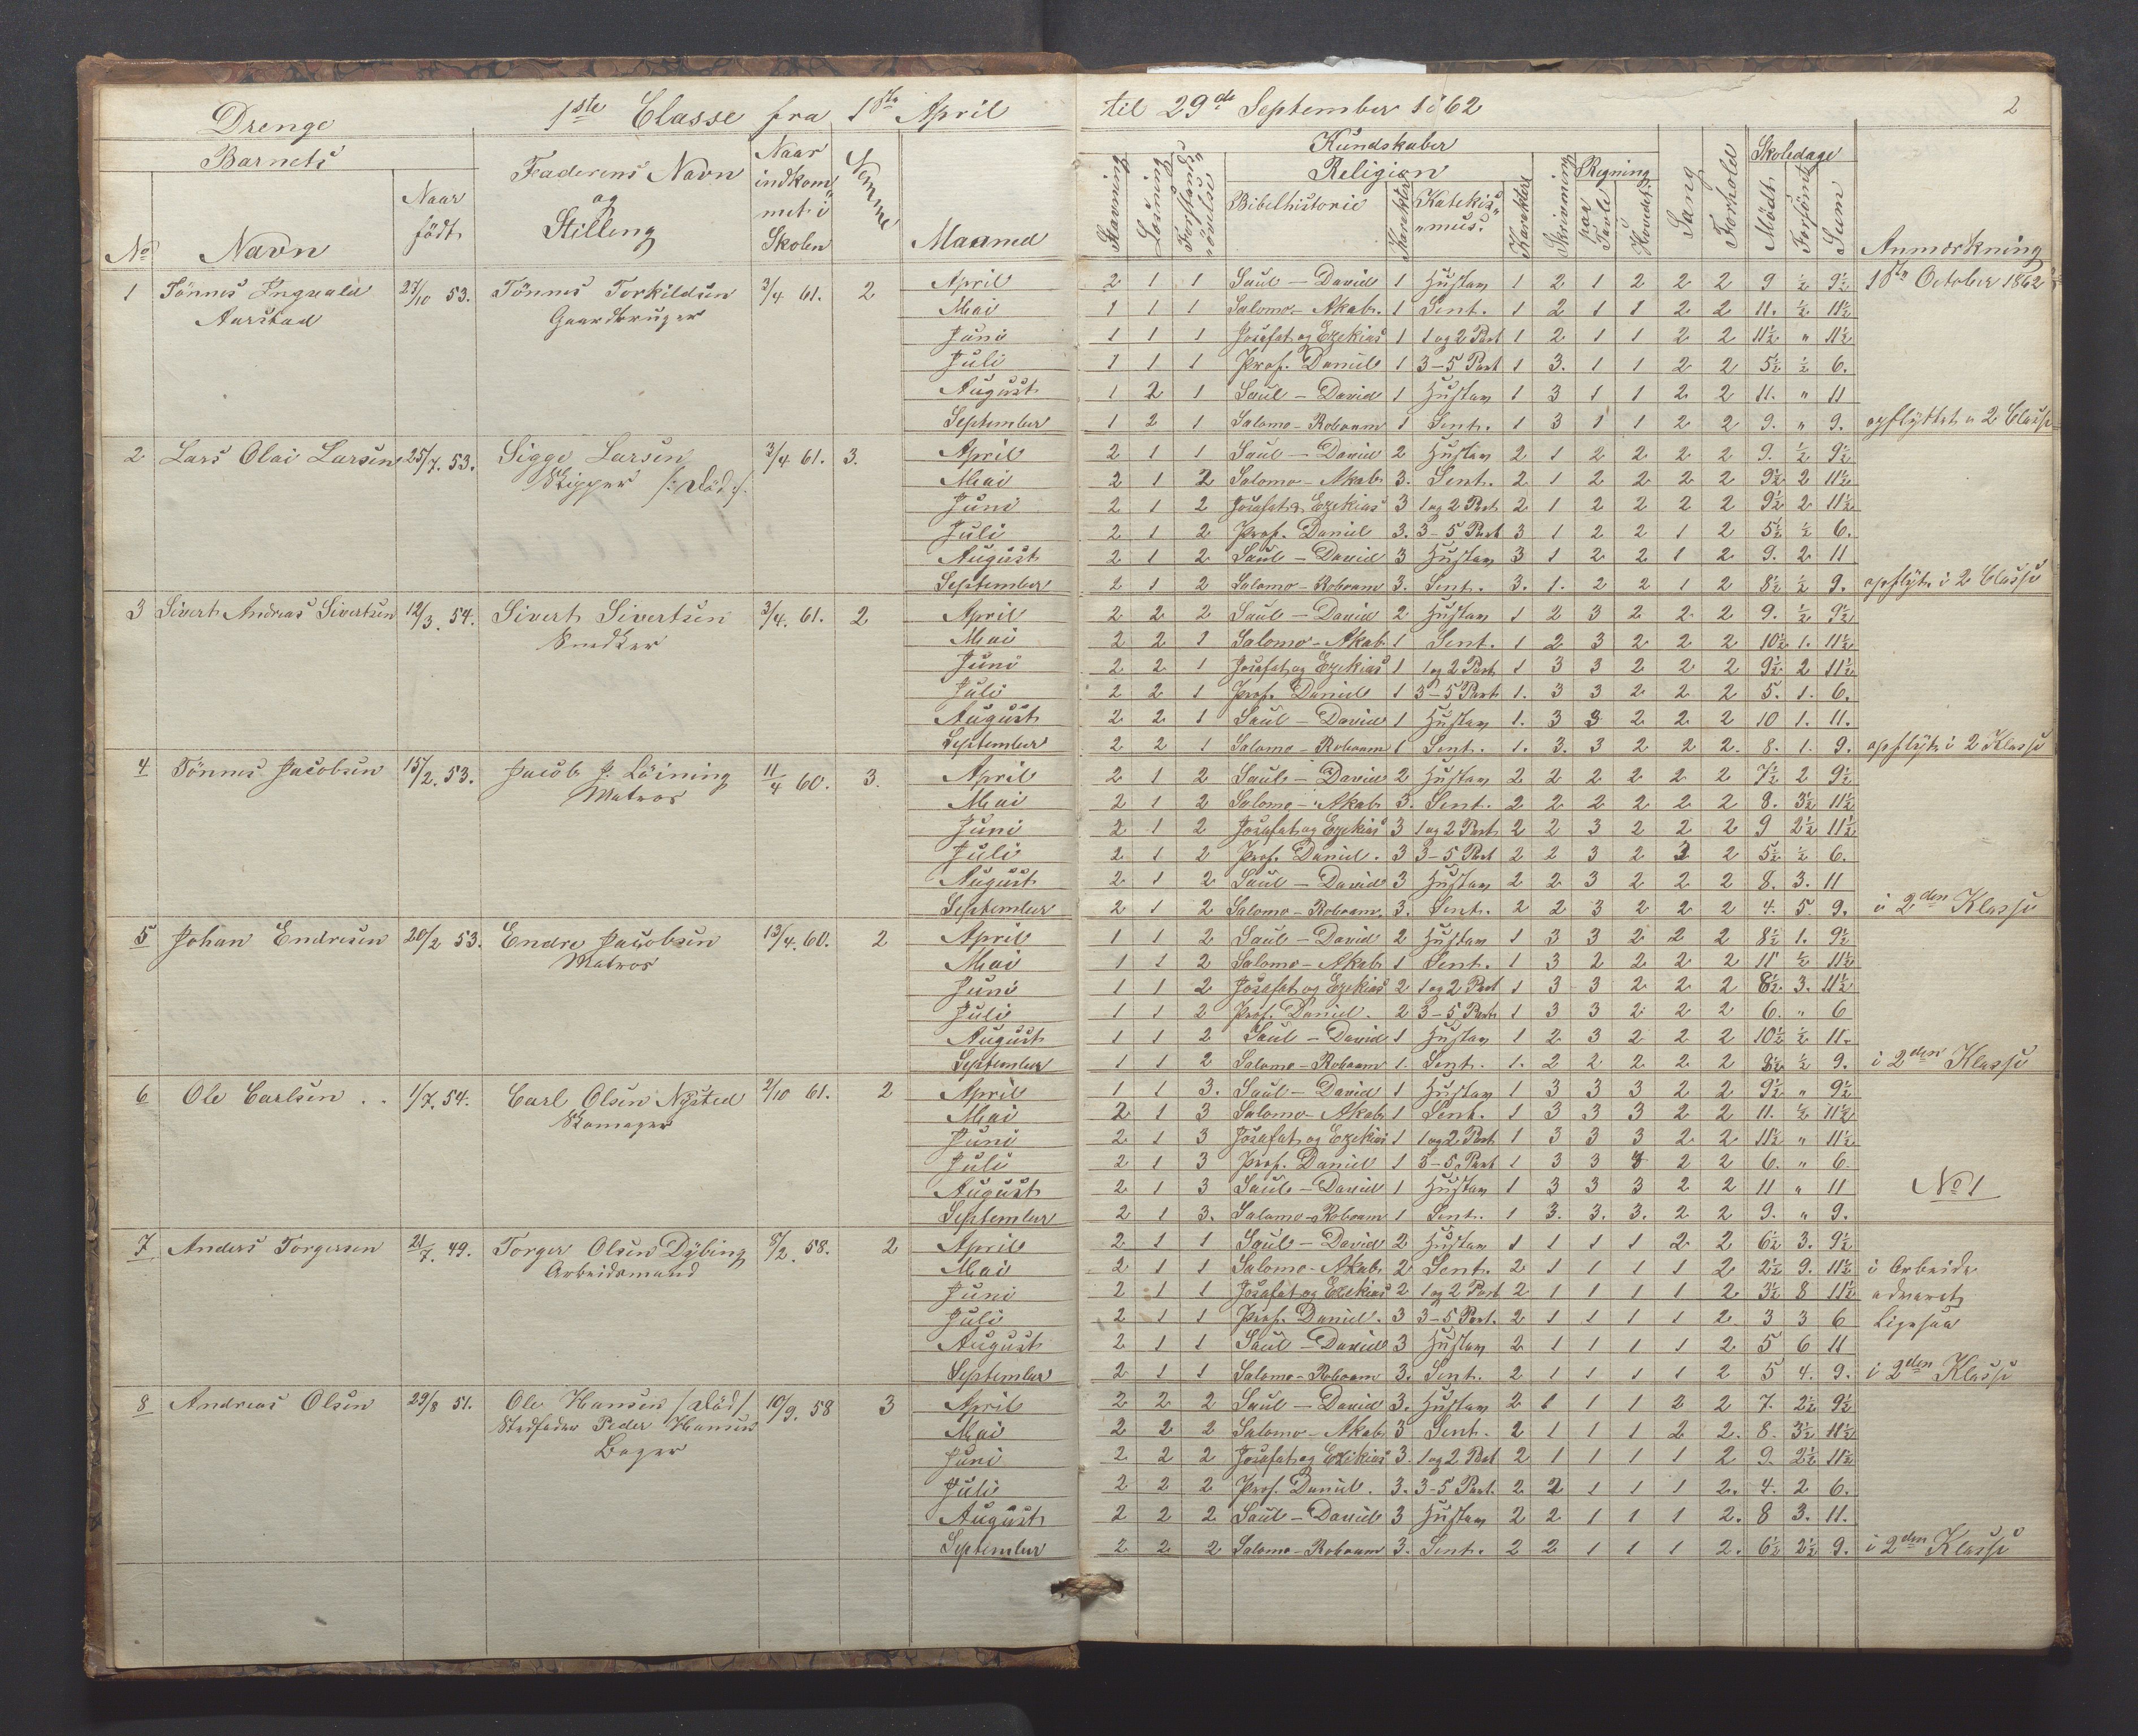 Drenge 1ste Classe fra 1ste April til 29de September 1862 2
Barnets Faderens Navn og Stilling Naar indkommet i Skolen Nemme Maaned
No Navn Naar født
Kundskaber Skoledage
Stavning Læsning Forstandsøvelse Religion Skrivning Regning Sang Forhold Mødt Forsømt Sum Anmærkning
Bibelhistorie Karakter Katekismus Karakter paa Tavle i Hovedet
1 Tönnes Ingvald Aarstad 27/10 53. Tönnes Torkildsen Gaardbruger 3/4 61. 2
April 2 1 1 Saul – David 1 Hustav 1 2 1 2 2 2 9 ½ 9½ 1ste October 1862
Mai 1 1 1 Salomo – Akab. 1 Sent. 1 2 1 1 2 2 11. ½ 11½
Juni 1 1 1 Josafat og Ezekias 1 1 og 2 Part 1 2 1 1 2 2 11½ " 11½
Juli 1 1 1 Prof. Daniel 1 3–5 Part 1 3. 1 1 2 2 5½ ½ 6.
August 1 2 1 Saul – David 1 Hustav 1 3 1 1 2 2 11. " 11
September 1 2 1 Salomo – Roboam 1 Sent. 1 3 1 1 2 2 9. " 9. opflyttet i 2 Classe
2 Lars Olai Larsen 25/7. 53. Sigge Larsen Skipper /: död :/. 3/4 61. 3.
April 2 1 1 Saul – David 2 Hustav 2 1 2 2 2 2 9. ½ 9½
Mai 2 1 2 Salomo – Akab 3. Sent. 2 1 2 2 2 2 9½ 2 11½
Juni 2 1 2 Josafat & Ezekias 3 1 og 2 Part 2 1 2 2 2 2 9½ 2 11½
Juli 2 1 2 Prof. Daniel 3. 3–5 Part 3 1 2 2 1 2 5½ ½ 6.
August 2 1 2 Saul – David 3 Hustav 3 1 2 2 1 2 9. 2 11
September 2 1 2 Salomo – Roboam 3. Sent. 3. 1. 2 2 1 2 8½ ½ 9. opflyt. i 2 Classe
3 Sivert Andreas Sivertsen 12/3. 54. Sivert Sivertsen Snedker 3/4. 61. 2
April 2 2 2 Saul – David 2 Hustav 1 2 3 2 2 2 9. ½ 9½
Mai 2 2 1 Salomo – Akab 1 Sent. 1 2 3 2 2 2 10½ 1. 11½
Juni 2 2 1 Josafat og Ezekias 1 1 og 2 Part 1 3 3 2 2 2 9½ 2 11½
Juli 2 2 1 Prof. Daniel 1 3–5 Part 1. 3 3 2 2 2 5. 1. 6.
August 2 2 1 Saul – David 1 Hustav 1. 3 3 2 2 2 10 1. 11.
September 2 2 1 Salomo – Roboam 1 Sent. 1. 3. 3 2 2 2. 8. 1. 9. opflyt. i 2 Klasse
4 Tönnes Jacobsen 15/2. 53. Jacob J. Löining Matros 11/4 60. 3.
April 2 1 2 Saul – David 2 Hustav 2 2 2 2 2 2 7½ 2 9½
Mai 2 1 2 Salomo – Akab 3. Sent. 2 2 2 2 2 2 8. 3½ 11½
Juni 2 1 2 Josafat og Ezekias 3 1 og 2 Part 2 2 3 2 2 2 9 2½ 11½
Juli 2 1 2 Prof. Daniel. 3 3–5 Part 2 2 3 2 2 2 5½ ½ 6.
August 2 1 2 Saul – David 3 Hustav 2 2 3 2 2 2 8. 3. 11
September 2 1 2 Salomo – Roboam. 3. Sent. 2 2 3 2 2 2 4. 5. 9. i 2den Klasse
5 Johan Endresen 20/2 53. Endre Jacobsen Matros 13/4. 60. 2
April 1 1 2 Saul – David 2 Hustav 1 3 3 2 2 2 8½ 1. 9½
Mai 1 1 2 Salomo – Akab 1 Sent. 1 3 2 2 2 2 11 ½ 11½
Juni 1 1 2 Josafat og Ezekias 2 1 og 2 Part 1 3 3 2 2 2 8½ 3. 11½
Juli 1 1 2 Prof. Daniel. 2 3–5 Part 1 3 3 2 2 2 6. " 6
August 1 1 2 Saul – David 1 Hustav 1 2 3 2 2 2 10½ ½ 11.
September 1 1 2 Salomo – Roboam 1. Sent. 1. 2 2 2 2 2 8½ ½ 9. i 2den Klasse
6 Ole Carlsen . . 1/7. 54. Carl Olsen Nysted Skomager 2/10 61. 2
April 1 1 3. Saul – David 1 Hustav 1 3 3 3 2 2 9½ " 9½
Mai 2 1 3 Salomo – Akab 1 Sent. 1 3 3 3 2 2 11. ½ 11½
Juni 2 1 3 Josafat og Ezekias 1 1 og 2 Part 1 3 3 3 2 2 11½ " 11½
Juli 2 1 3 Prof. Daniel 1 3–5 Part 1 3 3 3 2 2 6. " 6.
August 2 1 3 Saul – David 1 Hustav 1 3 3 3 2 2 11 " 11 No 1
September 2 1 3. Salomo – Roboam 1 Sent. 1 3. 3. 3. 2 2 9. " 9.
7 Anders Torgersen 21/7. 49. Torger Olsen Dybing Arbeidsmand 8/2. 58. 2
April 2 1 1 Saul – David 2 Hustav 1 1 1 1 2 2 6½ 3. 9½
Mai 2 1 1 Salomo – Akab 2 Sent. 2 1 1 1 1 2 2½ 9. 11½ i Arbeide
Juni 2 1 1 Josafat og Ezekias 2 1 og 2 Part 2 1 1 1 1 2 3½ 8 11½ advaret
Juli 2 1 1 Prof. Daniel. 3 3–5 Part. 2 1 1 1 1 2. 3 3 6 Ligesaa
August 2 1 1 Saul – David 3 Hustav 2 1 1 1 1 2. 5 6 11
September 2 1 1 Salomo – Roboam 3. Sent. 2 1 1 1 1 2 5 4. 9. i 2den Klasse
8 Andreas Olsen 29/8 51. Ole Hansen /död/ Stedfader Peder Hansen Bager 10/9. 58 3
April 2 2 2 Saul – David 3. Hustav 2 1 1 1 2 2 7. 2½ 9½
Mai 2 2 2 Salomo – Akab 3 Sent. 2 1 1 1 2 2. 8. 3½ 11½
Juni 2 2 2 Josafat og Ezekias 3. 1 og 2 Part 2 1 1 1 1 2 9. 2½ 11½
Juli 2 2 2 Prof. Daniel. 3. 3–5 Part. 2 2 1 1 1 2. 4. 2 6.
August 2 2 2 Saul – David 3 Hustav 2 2 1 1 1 2. 8 3. 11.
September 2 2 2 Salomo – Roboam 3. Sent. 2 2 1 1 1 2. 6½ 2½ 9. i 2den Klasse